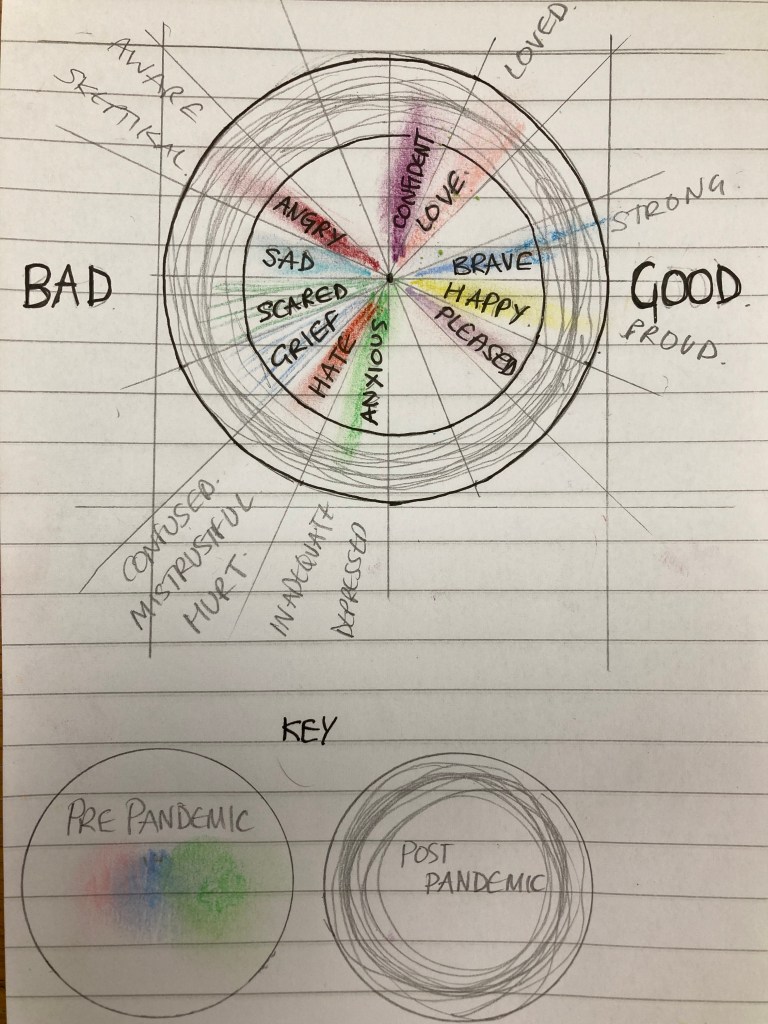 AWARE
SKEPTIKAL
LOVED.
CONFIDENT
LOVE
ANGRY
SAD
SCARED
GRIEF
HATE
ANXIOUS
BRAVE
HAPPY
PLEASED
BAD
GOOD
STRONG
PROUD.
CONFUSED.
MISTRUSTFUL
HURT.
INADEQUATE
DEPRESSED
KEY
PRE PANDEMIC
POST
PANDEMIC